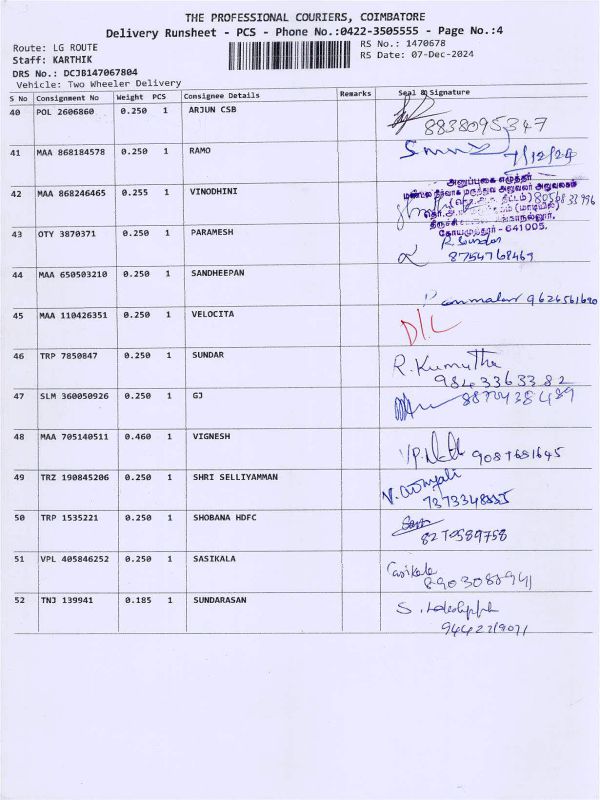 THE PROFESSIONAL COURIERS, COIMBATORE
Delivery Runsheet - PCS - Phone No.:0422-3505555 - Page No.:4
Route: LG ROUTE
RS No.: 1470678
Staff: KARTHIK
RS Date: 07-Dec-2024
DRS No.: DCJB147067804
Vehicle: Two Wheeler Delivery
S No Consignment No Weight PCS Consignee Details Remarks Seal & Signature
40 POL 2606860 0.250 1 ARJUN CSB
8838095347
41 MAA 868184578 0.250 1 RAMO
7/12/24
அனுப்புகை எழுத்தர்
மண்டல நிர்வாக மருத்துவ அலுவலர் அலுவலகம்
42 MAA 868246465 0.255 1 VINODHINI 8056833996
கோயமுத்தூர் - 641005.
43 OTY 3870371 0.250 1 PARAMESH
8754768469
44 MAA 650503210 0.250 1 SANDHEEPAN
9626561690
45 MAA 110426351 0.250 1 VELOCITA D/L
46 TRP 7850847 0.250 1 SUNDAR R. Kumutha
9843363382
47 SLM 360050926 0.250 1 GJ
48 MAA 705140511 0.460 1 VIGNESH
9087681645
49 TRZ 190845206 0.250 1 SHRI SELLIYAMMAN
50 TRP 1535221 0.250 1 SHOBANA HDFC
51 VPL 405846252 0.250 1 SASIKALA Sasikala
8903088941
52 TNJ 139941 0.185 1 SUNDARASAN